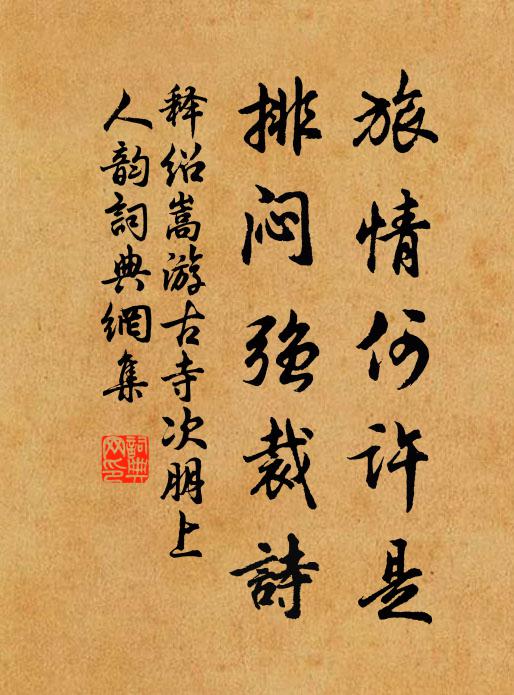 旅情何许是
排闷强裁詩
释绍嵩游古寺次朋上
人韵詞典網集
詞典网印